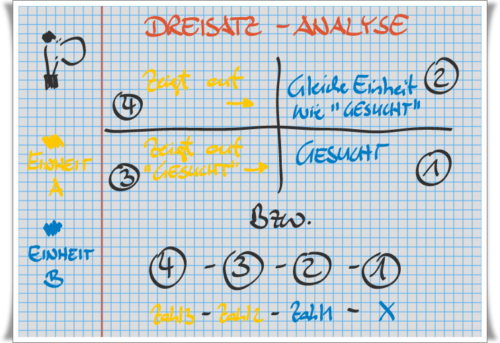 DREISATZ - ANALYSE
Zeigt auf
→
④
Gleiche Einheit
wie "GESUCHT"
②
Zeigt auf
"GESUCHT" →
③
GESUCHT
①
EINHEIT
A
EINHEIT
B
Bzw.
④ - ③ - ② - ①
Zahl3 - Zahl2 - Zahl1 - X